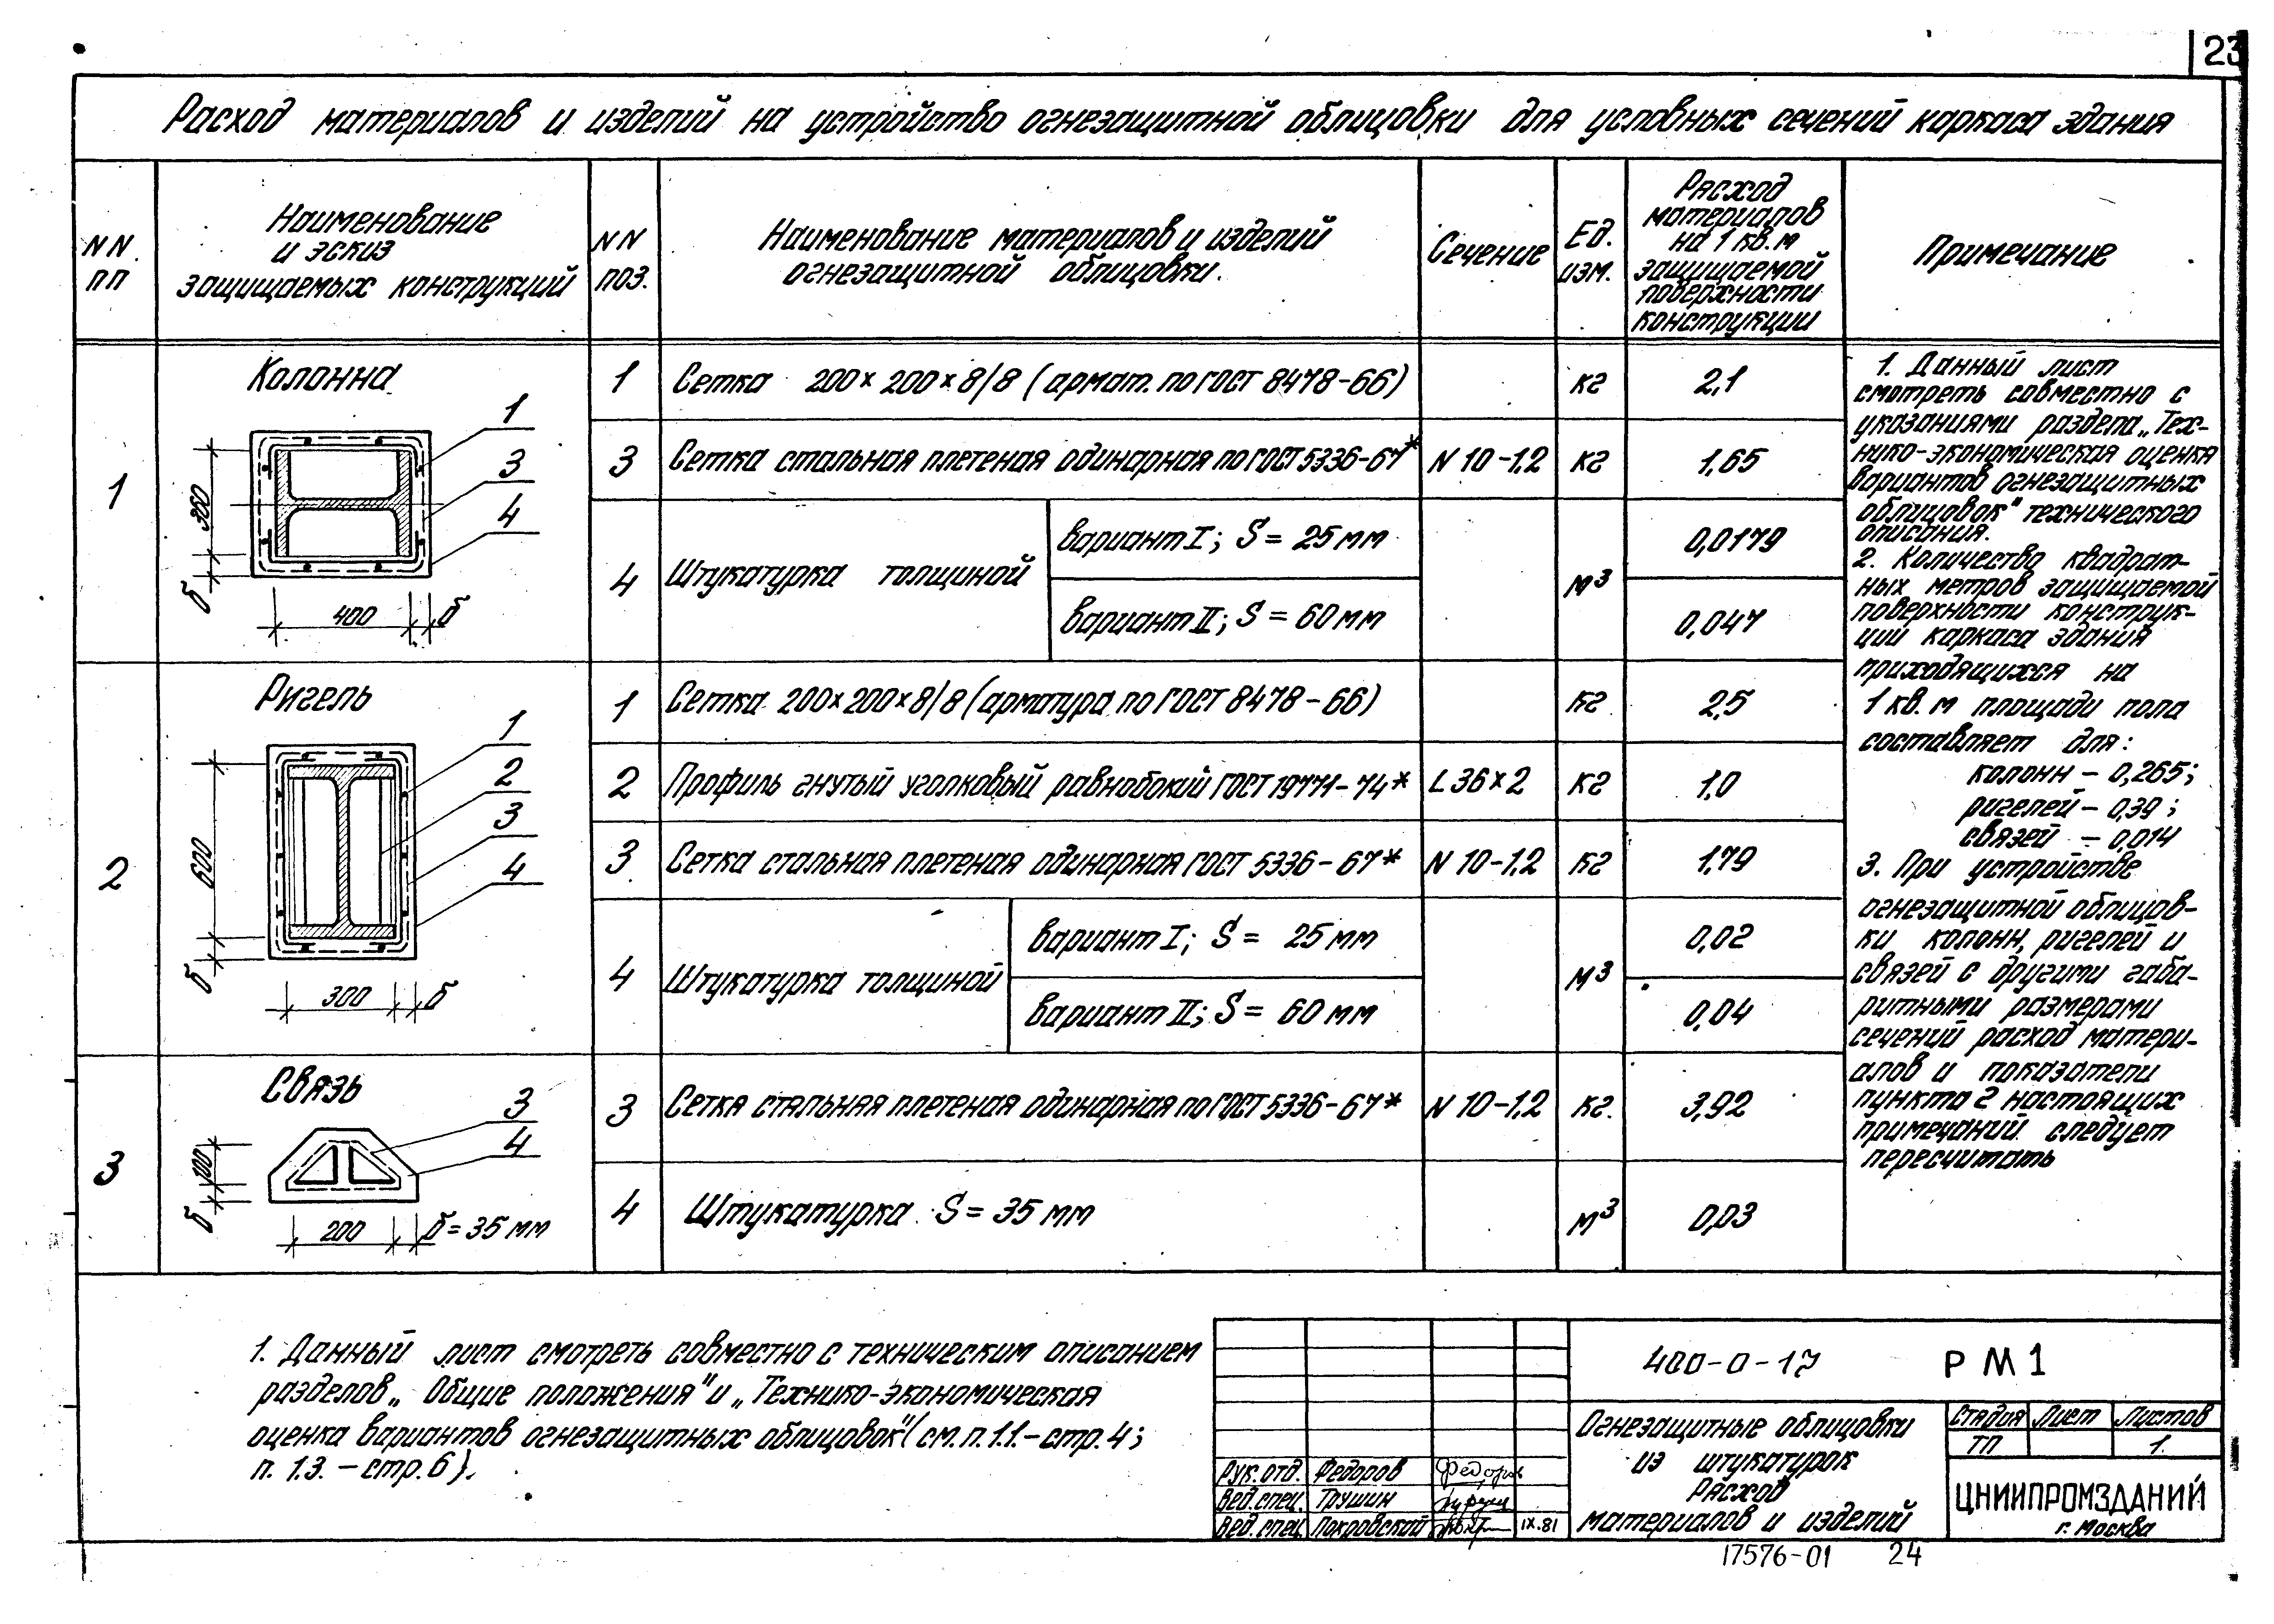 23
Расход материалов и изделий на устройство огнезащитной облицовки для условных сечений каркаса здания
NN
пп
Наименование
и эскиз
защищаемых конструкций
NN
поз.
Наименование материалов и изделий
огнезащитной облицовки.
Сечение
Ед.
изм.
Расход
материалов
на 1 кв.м
защищаемой
поверхности
конструкции
Примечание
1
Колонна
1
3
4
360
δ
400
δ
1
Сетка 200×200×8/8 (армат. по ГОСТ 8478-66)
кг
2,1
3
Сетка стальная плетеная одинарная по ГОСТ 5336-67*
N 10-1,2
кг
1,65
4
Штукатурка толщиной
вариант I; S = 25 мм
м³
0,0179
вариант II; S = 60 мм
0,047
2
Ригель
1
2
3
4
600
δ
300
δ
1
Сетка 200×200×8/8 (арматура по ГОСТ 8478-66)
кг
2,5
2
Профиль гнутый уголковый равнобокий ГОСТ 19771-74*
L 36×2
кг
1,0
3
Сетка стальная плетеная одинарная ГОСТ 5336-67*
N 10-1,2
кг
1,79
4
Штукатурка толщиной
вариант I; S = 25 мм
м³
0,02
вариант II; S = 60 мм
0,04
3
Связь
3
4
100
δ
200
δ = 35 мм
3
Сетка стальная плетеная одинарная по ГОСТ 5336-67*
N 10-1,2
кг.
3,92
4
Штукатурка S = 35 мм
м³
0,03
1. Данный лист
смотреть совместно с
указаниями раздела „Тех-
нико-экономическая оценка
вариантов огнезащитных
облицовок" технического
описания.
2. Количество квадрат-
ных метров защищаемой
поверхности конструк-
ций каркаса здания
приходящихся на
1 кв. м площади пола
составляет для:
колонн – 0,265;
ригелей – 0,39;
связей – 0,014
3. При устройстве
огнезащитной облицов-
ки колонн, ригелей и
связей с другими габа-
ритными размерами
сечений расход матери-
алов и показатели
пункта 2 настоящих
примечаний следует
пересчитать
1. Данный лист смотреть совместно с техническим описанием
разделов „Общие положения" и „Технико-экономическая
оценка вариантов огнезащитных облицовок" (см. п. 1.1. – стр. 4;
п. 1.3. – стр. 6).
400-0-17 РМ1
Огнезащитные облицовки
из штукатурок
Расход
материалов и изделий
Стадия Лист Листов
ТП 1.
ЦНИИПРОМЗДАНИЙ
г. Москва
Рук. отд. Федоров Федоров
Вед. спец. Трушин
Вед. спец. Покровский IX.81
17576-01 24